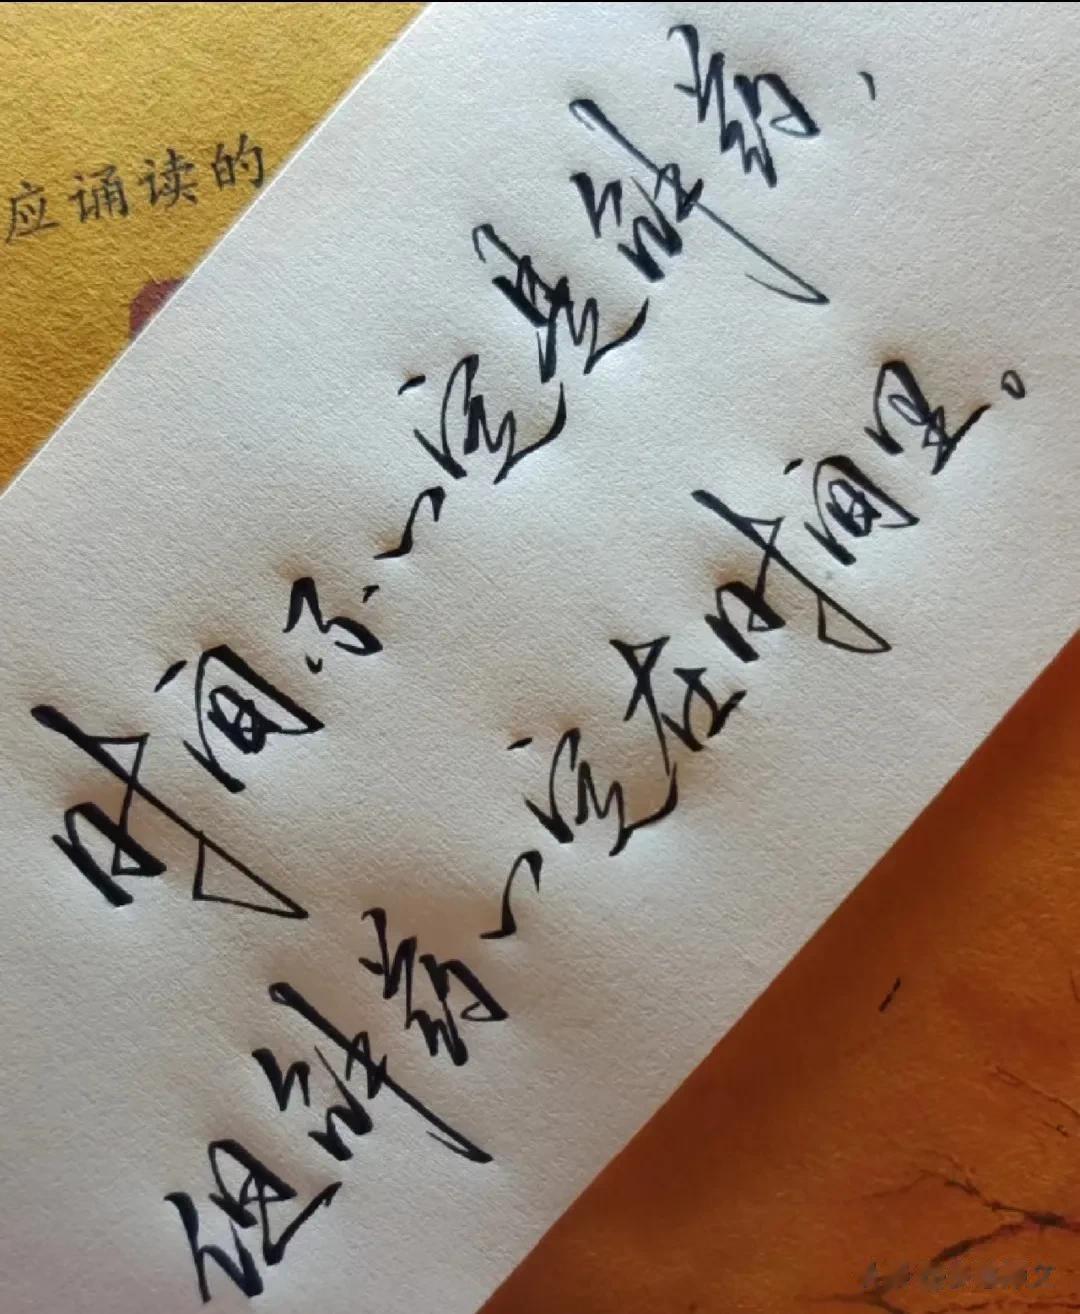 应诵读的
时间不一定是解药，
但解药一定在时间里。